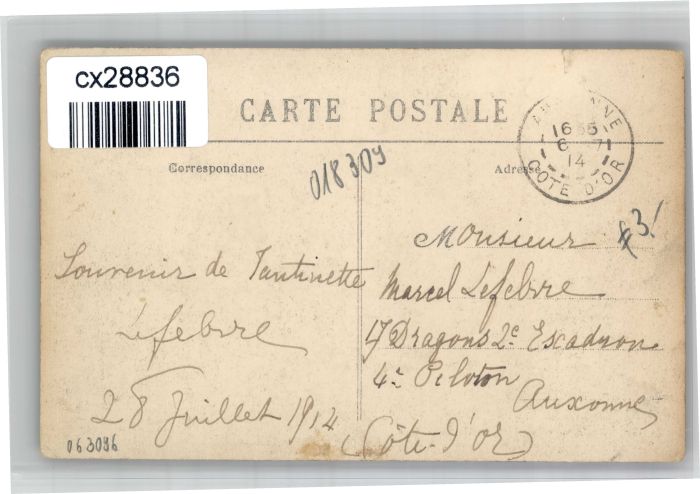 cx28836
CARTE POSTALE
Correspondance
Adresse
018309
AUXONNE
1655
14
COTE D'OR
Monsieur
Marcel Lefebvre
17 Dragons 2e Escadron
4e Peloton
Auxonne
(Côte-d'or)
Souvenir de Tantinette
Lefebvre
28 Juillet 1914
063096